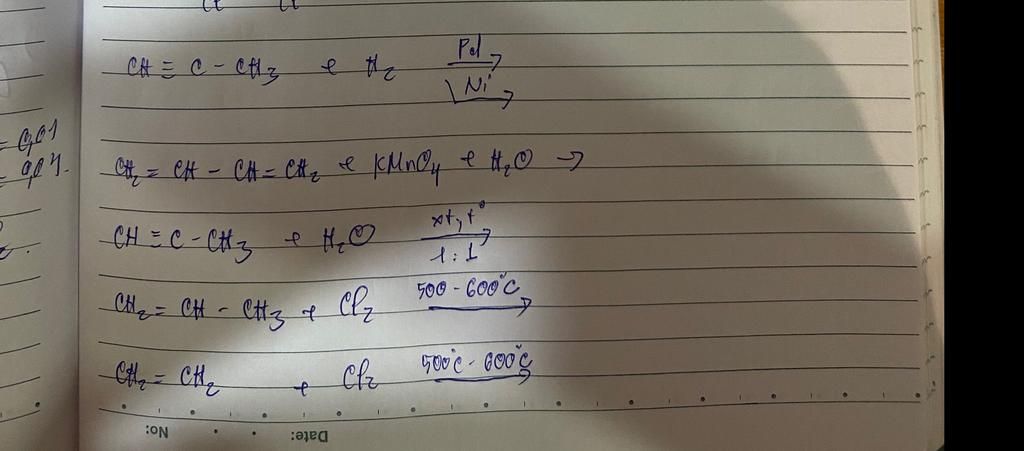 CH ≡ C - CH3 + H2 Pd→ Ni→
= 0,01
CH2 = CH - CH = CH2 + KMnO4 + H2O →
CH ≡ C - CH3 + H2O xt, t° → 1:1
CH2 = CH - CH3 + Cl2 500 - 600°C →
CH2 = CH2 + Cl2 500°C - 600°C →
No:
Date: